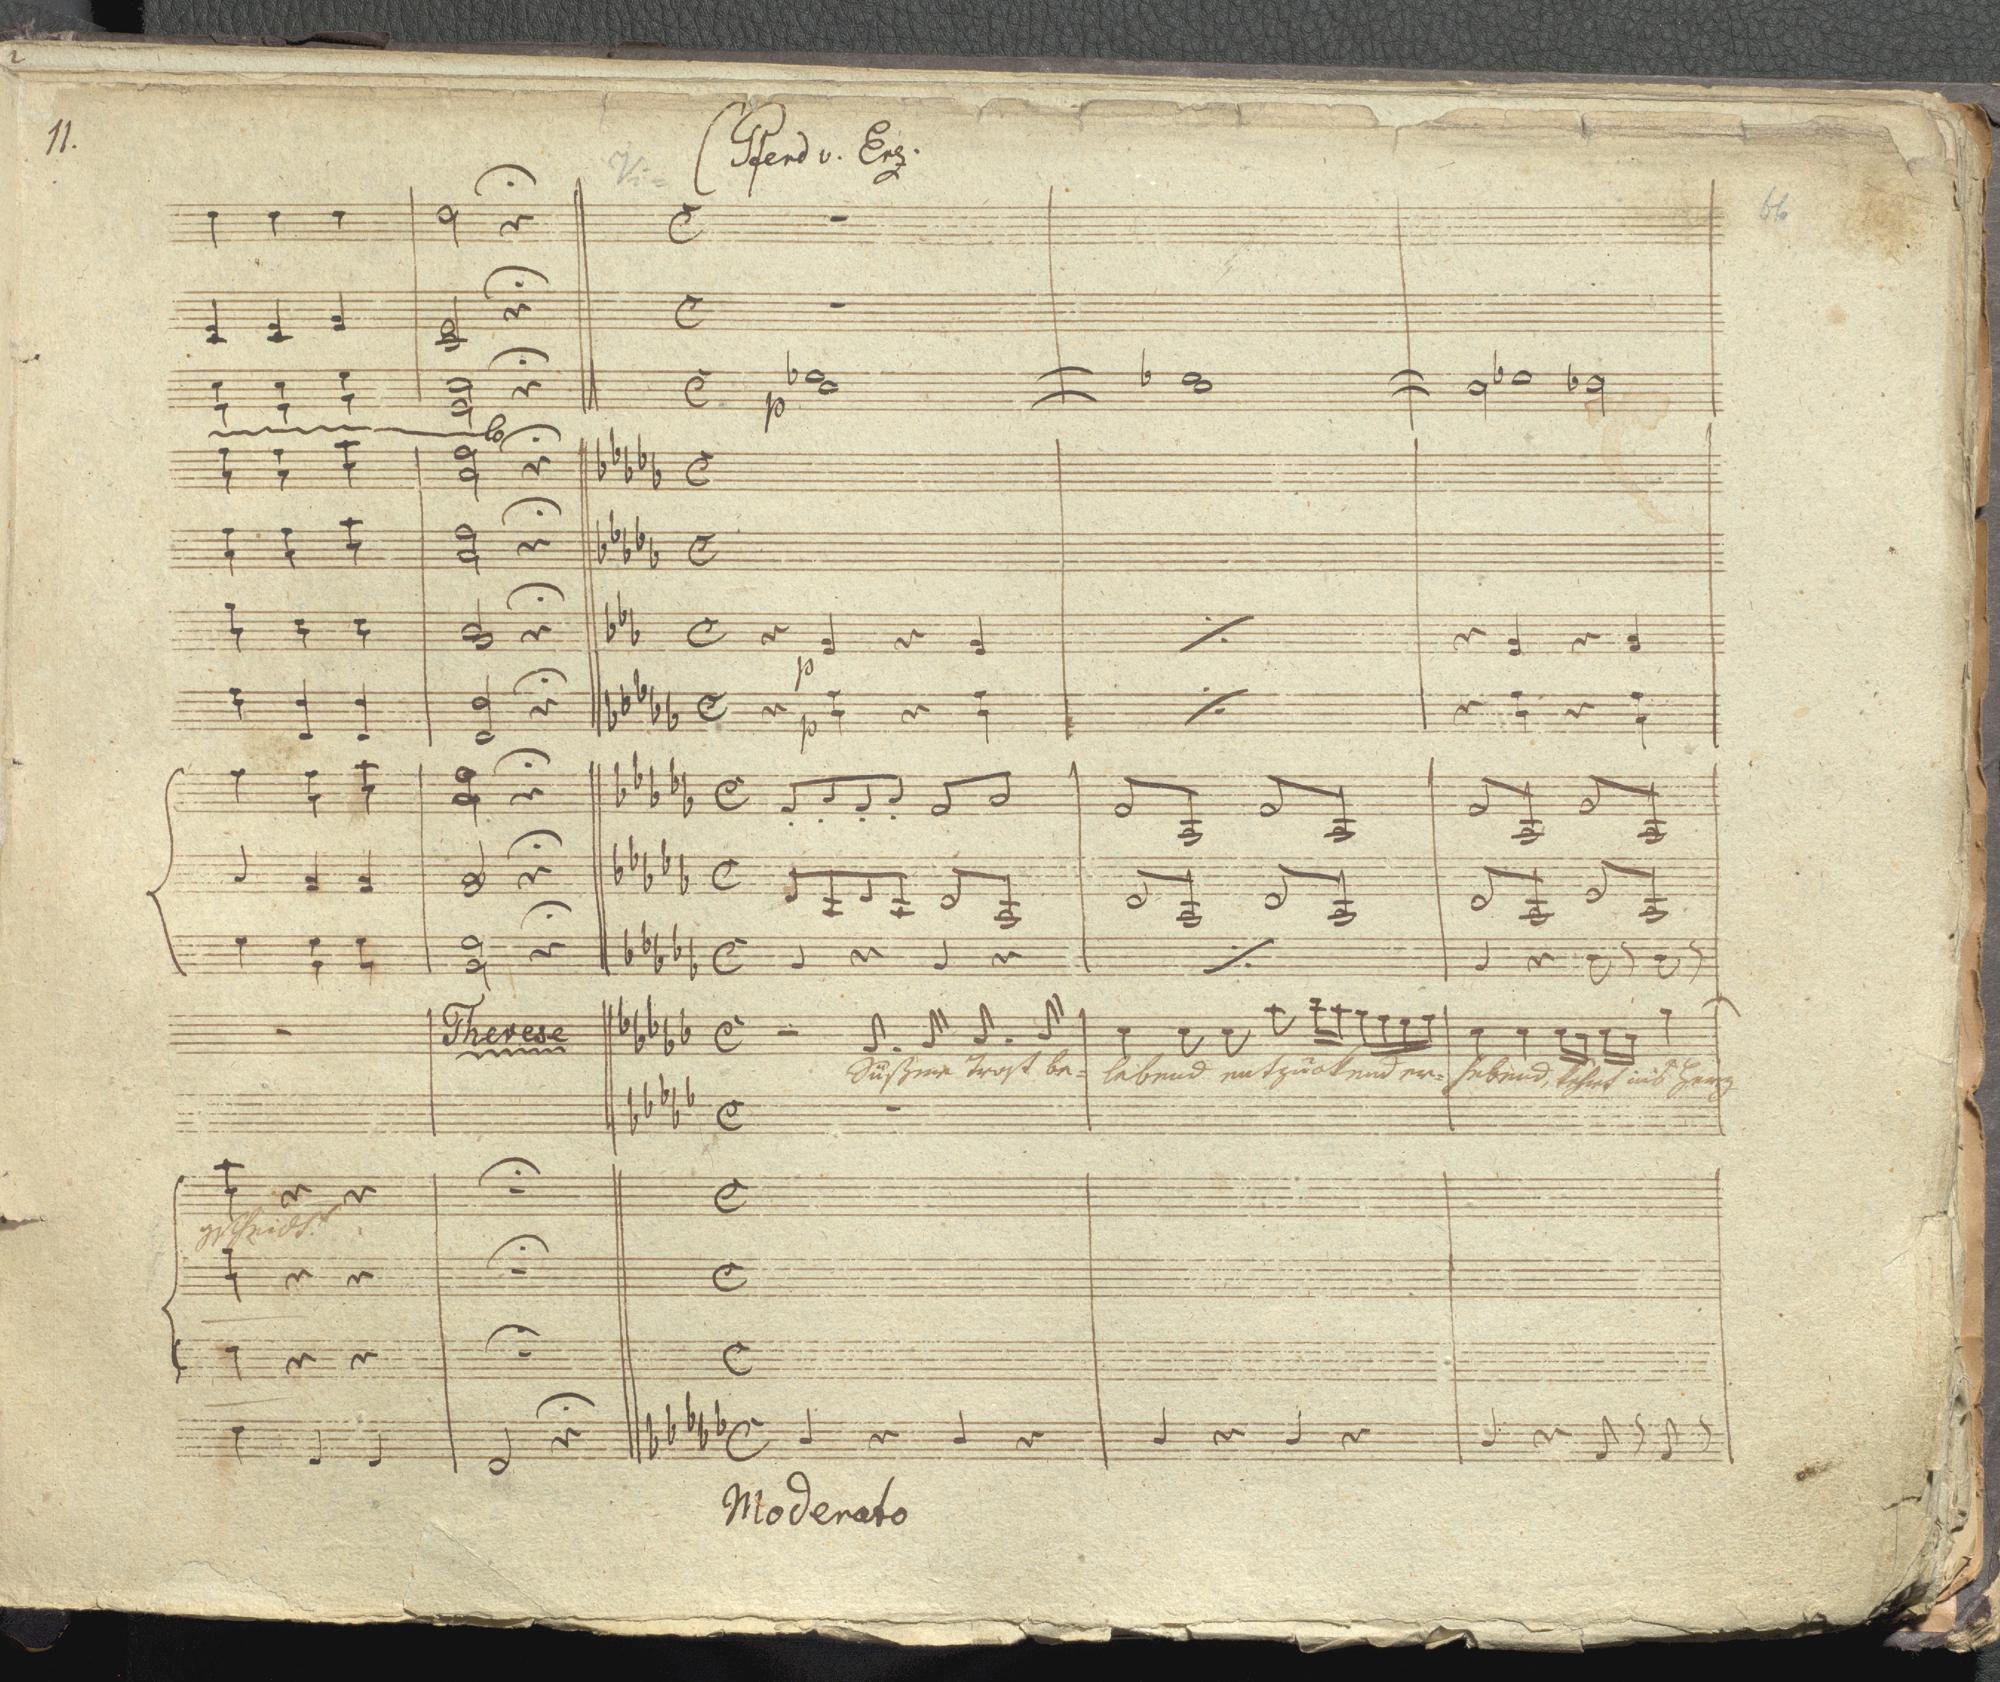 11.
(Pferd v. Erz.
Vi=
66
p
p
p
Therese
Süßer Trost be= lebend entzückend er= hebend, kehrt ins Herz
Moderato